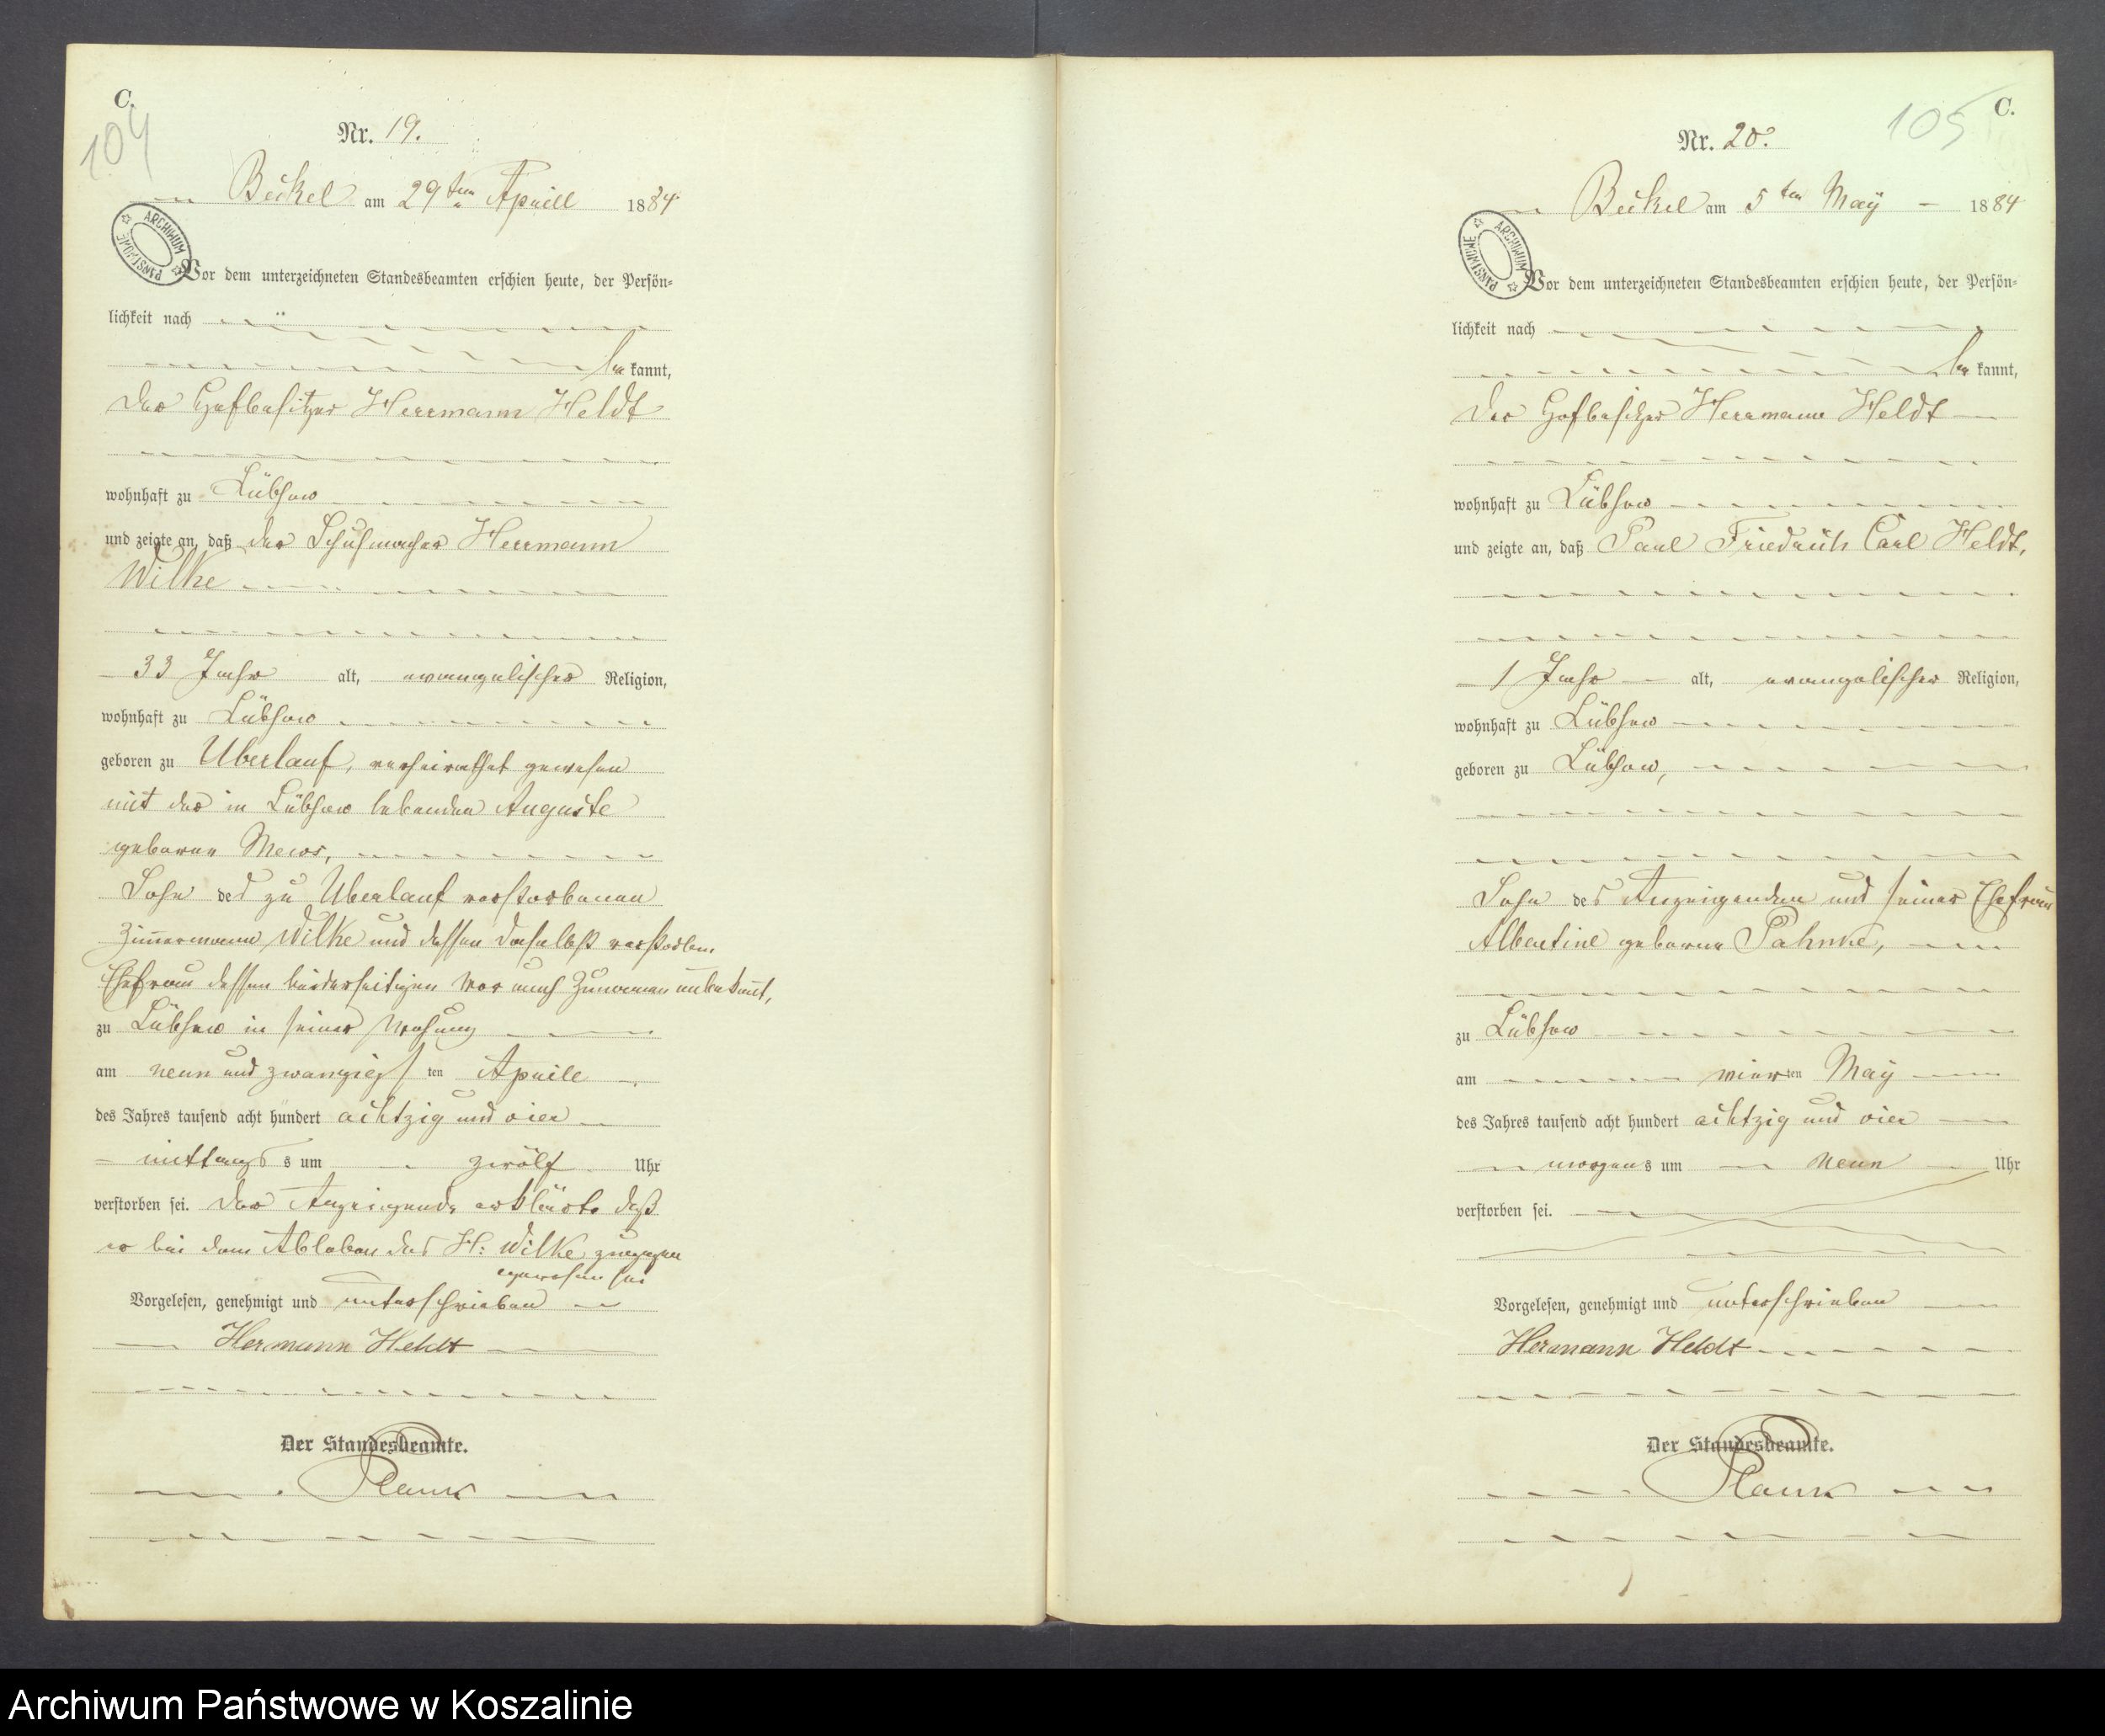 C.
104
Nr. 19.
Beckel am 29ten Aprill 1884
ARCHIWUM PAŃSTWOWE
Vor dem unterzeichneten Standesbeamten erschien heute, der Persön-
lichkeit nach
bekannt,
der Hofbesitzer Herrmann Heldt
wohnhaft zu Lübzow
und zeigte an, daß der Schuhmacher Herrmann
Wilke
33 Jahr alt, evangelischer Religion,
wohnhaft zu Lübzow
geboren zu Uberlauf, verheirathet gewesen
mit der in Lübzow lebenden Auguste
geborne Mews,
Sohn des zu Uberlauf verstorbenen
Zimmermann Wilke und dessen daselbst verstorben.
Ehefrau dessen beiderseitigen Vor auch Zunamen unbekannt,
zu Lübzow in seiner Wohnung
am neun und zwanzigsten Aprile
des Jahres tausend acht hundert achtzig und vier
mittags um zwölf Uhr
verstorben sei. Der Anzeigende erklärte daß
er bei dem Ableben des H: Wilke zugegen
gewesen sei
Vorgelesen, genehmigt und unterschrieben
Hermann Heldt
Der Standesbeamte.
C.
105
Nr. 20.
Beckel am 5ten May 1884
ARCHIWUM PAŃSTWOWE
Vor dem unterzeichneten Standesbeamten erschien heute, der Persön-
lichkeit nach
bekannt,
der Hofbesitzer Herrmann Heldt
wohnhaft zu Lübzow
und zeigte an, daß Paul Friedrich Carl Heldt,
1 Jahr alt, evangelischer Religion,
wohnhaft zu Lübzow
geboren zu Lübzow,
Sohn des Anzeigenden und seiner Ehefrau
Albertine geborne Pahnke,
zu Lübzow
am vierten May
des Jahres tausend acht hundert achtzig und vier
morgens um neun Uhr
verstorben sei.
Vorgelesen, genehmigt und unterschrieben
Hermann Heldt
Der Standesbeamte.
Archiwum Państwowe w Koszalinie